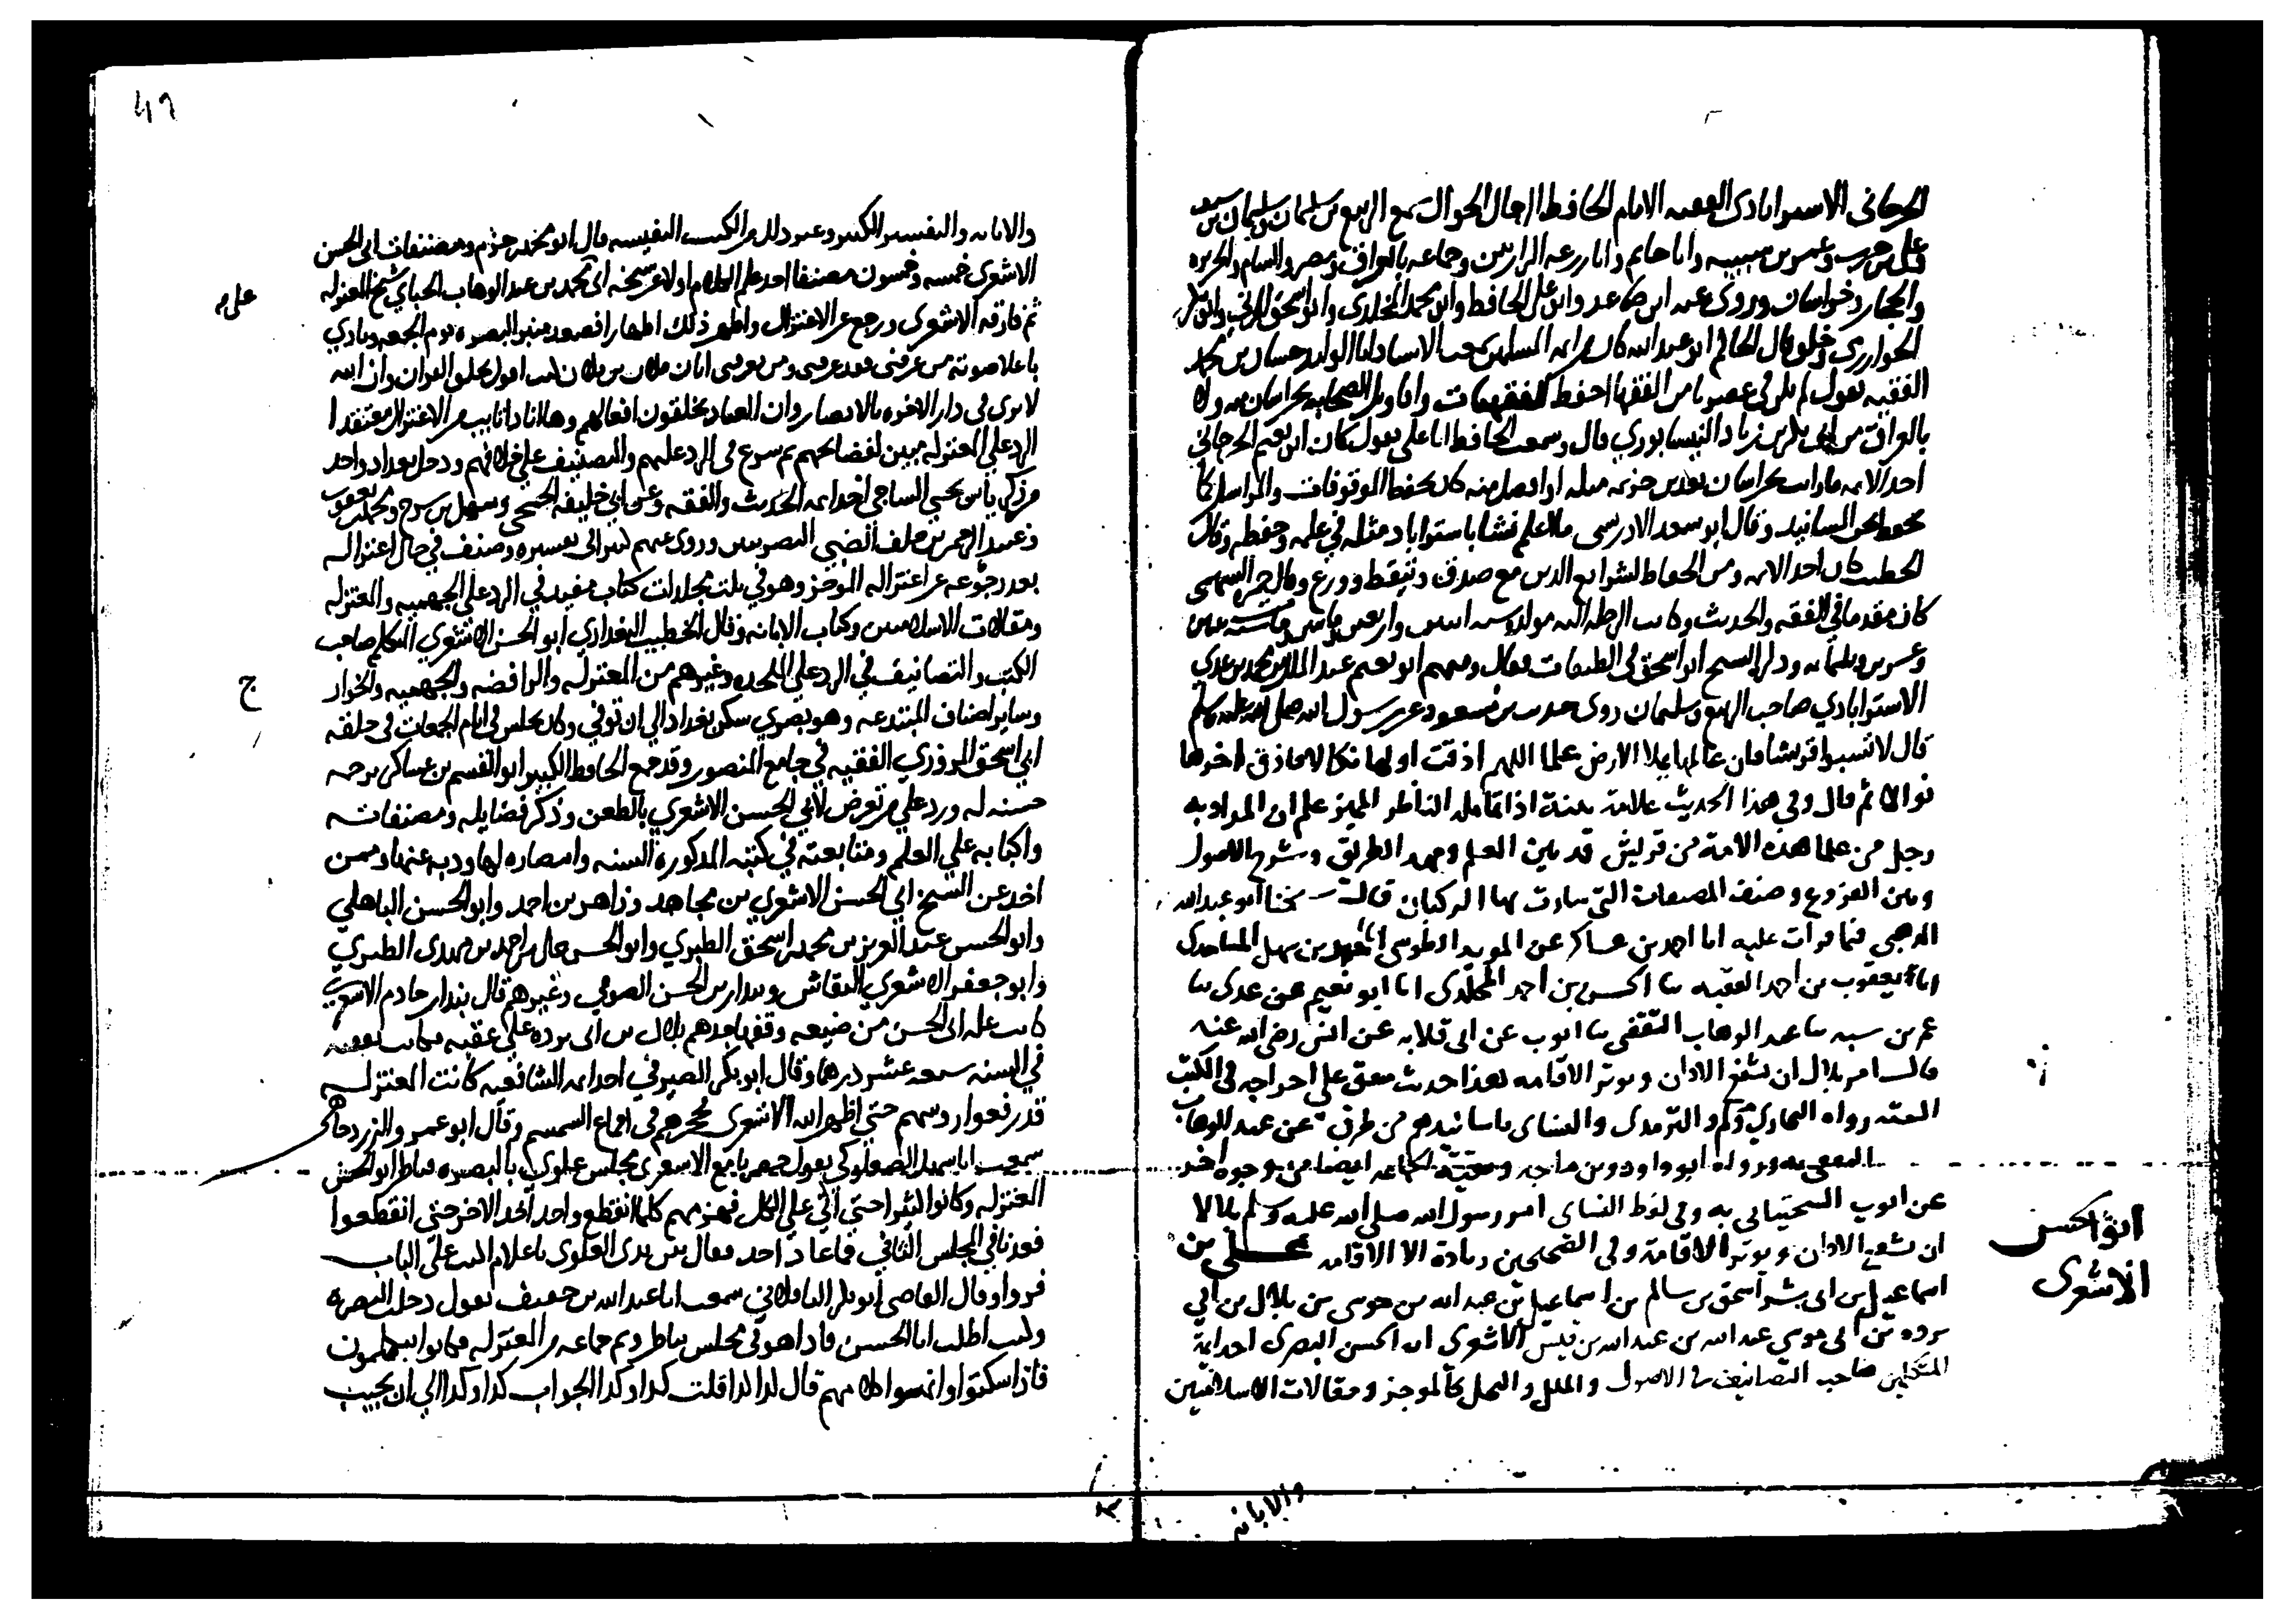 الجرجاني الاستراباذي الفقيه الامام الحافظ الرحال الجوال سمع الربيع بن سليمان وسليمان بن سيف
وعلي بن حرب وعمر بن شبيبه وابا حاتم وابا زرعه الرازيين وجماعه بالعراق ومصر والشام والجزيره
والحجاز وخراسان وروى عنه ابن صاعد وابو علي الحافظ وابو محمد المخلدي وابو اسحق المزكي وابو بكر
الجوزقي وخلق قال الحاكم ابو عبد الله كان من ايمه المسلمين سمعت الاستاذ ابا الوليد حسان بن محمد
الفقيه يقول لم يكن في عصرنا من الفقها احفظ للفقهيات واقاويل الصحابه بخراسان منه ولا
بالعراق من ابي بكر بن زياد النيسابوري قال وسمعت الحافظ ابا علي يقول كان ابو نعيم الجرجاني
احد الايمه ما رايت بخراسان بعد بن خزيمه مثله او افضل منه كان يحفظ الموقوفات والمراسيل كما
نحفظ نحن المسانيد وقال ابو سعد الادريسي ما اعلم نشا باستراباد مثله في علمه وحفظه وقال
الخطيب كان احد الايمه ومن الحفاظ لشرايع الدين مع صدق وتيقظ وورع وقال حمزه السهمي
كان مقدما في الفقه والحديث وكانت الرحله اليه مولده سنه اثنتين واربعين ومايتين ومات سنه ثلاث
وعشرين وثلثمايه وذكره الشيخ ابو اسحق في الطبقات فقال ومنهم ابو نعيم عبد الملك بن محمد بن عدي
الاستراباذي صاحب الربيع بن سليمان روى حديث بن مسعود عن رسول الله صلى الله عليه وسلم
قال لا تسبوا قريشا فان عالمها يملا الارض علما اللهم اذقت اولها نكالا فاذق اخرها
نوالا ثم قال وفي هذا الحديث علامة بينة اذا تامله الناظر المميز علم ان المراد به
رجل من علما هذه الامة من قريش قد بين العلم ومهد الطريق وشرح الاصول
وبين الفروع وصنف المصنفات التي سارت بها الركبان قال شيخنا ابو عبد الله
الذهبي فيما قرات عليه انا احمد بن عساكر عن المويد الطوسي انا محمد بن سهل المساجدي
انا يعقوب بن احمد الفقيه ثنا الحسن بن احمد المخلدي انا ابو نعيم بن عدي ثنا
عمر بن شبه ثنا عبد الوهاب الثقفي ثنا ايوب عن ابي قلابه عن انس رضي الله عنه
قال امر بلال ان يشفع الاذان ويوتر الاقامه هذا حديث متفق على اخراجه في الكتب
السته رواه البخاري وم والترمذي والنساي باسانيدهم من طرق عن عبد الوهاب
الثقفي به ورواه ابو داود وبن ماجه وبقية الجماعه ايضا من وجوه اخر
عن ايوب السختياني به وفي لفظ النساي امر رسول الله صلى الله عليه وسلم بلالا
ان يشفع الاذان ويوتر الاقامة وفي الصحيحين زيادة الا الاقامه علي بن
ابو الحسن
الاشعري
اسماعيل بن ابي بشر اسحق بن سالم بن اسماعيل بن عبد الله بن موسى بن بلال بن ابي
برده بن ابي موسى عبد الله بن قيس الاشعري ابو الحسن البصري احد ايمة
المتكلمين صاحب التصانيف في الاصول والملل والنحل كالموجز ومقالات الاسلاميين
والابانه
والابانه والتفسير الكبير وغير ذلك من الكتب النفيسه قال ابو محمد بن حزم ومصنفات ابي الحسن
الاشعري خمسه وخمسون مصنفا اخذ علم الكلام اولا عن شيخه ابي محمد بن عبد الوهاب الجباي شيخ المعتزله
ثم فارقه الاشعري ورجع عن الاعتزال واظهر ذلك اظهارا فصعد منبر البصره يوم الجمعه ونادى
باعلا صوته من عرفني فقد عرفني ومن لم يعرفني انا فلان بن فلان كنت اقول بخلق القران وان الله
لا يرى في دار الاخره بالابصار وان العباد يخلقون افعالهم وها انا ذا تايب من الاعتزال معتقدا
الرد على المعتزله مبين لفضايحهم ثم شرع في الرد عليهم والتصنيف على خلافهم ودخل بغداد واخذ
عن زكريا بن يحيى الساجي احد ايمه الحديث والفقه وعن ابي خليفه الجمحي وسهل بن سرح ومحمد بن يعقوب
وعبد الرحمن بن خلف الضبي البصريين وروى عنهم كثيرا في تفسيره وصنف في حال اعتزاله
بعد رجوعه عن اعتزاله الموجز وهو في ثلث مجلدات كتاب مفيد في الرد على الجهميه والمعتزله
ومقالات الاسلاميين وكتاب الابانه وقال الخطيب البغدادي ابو الحسن الاشعري المتكلم صاحب
الكتب والتصانيف في الرد على الملحده وغيرهم من المعتزله والرافضه والجهميه والخوار
ج
وساير اصناف المبتدعه وهو بصري سكن بغداد الى ان توفي وكان يجلس في ايام الجمعات في حلقه
ابي اسحق المروزي الفقيه في جامع المنصور وقد جمع الحافظ الكبير ابو القسم بن عساكر ترجمه
حسنه له ورد على من تعرض لابي الحسن الاشعري بالطعن وذكر فضايله ومصنفاته
واكبابه على العلم ومتابعته في كتبه المذكورة السنه وانتصاره لها وذبه عنها وممن
اخذ عن الشيخ ابي الحسن الاشعري بن مجاهد وزاهر بن احمد وابو الحسن الباهلي
وابو الحسن عبد العزيز بن محمد بن اسحق الطبري وابو الحسن علي بن احمد بن مهدي الطبري
وابو جعفر الاشعري النقاش وبندار بن الحسن الصوفي وغيرهم قال بندار خادم الاشعري
كانت غله ابي الحسن من ضيعه وقفها جدهم بلال بن ابي برده على عقبه فكانت نفقته
في السنه سبعه عشر درهما وقال ابو بكر الصيرفي احد ايمه الشافعيه كانت المعتزله
قد رفعوا روسهم حتى اظهر الله الاشعري فحجرهم في اقماع السمسم وقال ابو عمرو الزردجاهي
سمعت ابا سهل الصعلوكي يقول حضرنا مع الاشعري مجلس علوي بالبصره فناظر ابو الحسن
المعتزله وكانوا كثيرا حتى اتى على الكل فهزمهم كلما انقطع واحد اخذ الاخر حتى انقطعوا
فعدنا في المجلس الثاني فما عاد احد فقال بين يدي العلوي يا غلام اكتب على الباب
فروا وقال القاضي ابو بكر الباقلاني سمعت ابا عبد الله بن خفيف يقول دخلت البصره
وكنت اطلب ابا الحسن فاذا هو في مجلس يناظر وثم جماعه من المعتزله فكانوا يتكلمون
فاذا سكتوا وانهوا كلامهم قال لهذا قلت كذا وكذا الجواب كذا وكذا الى ان يجيب